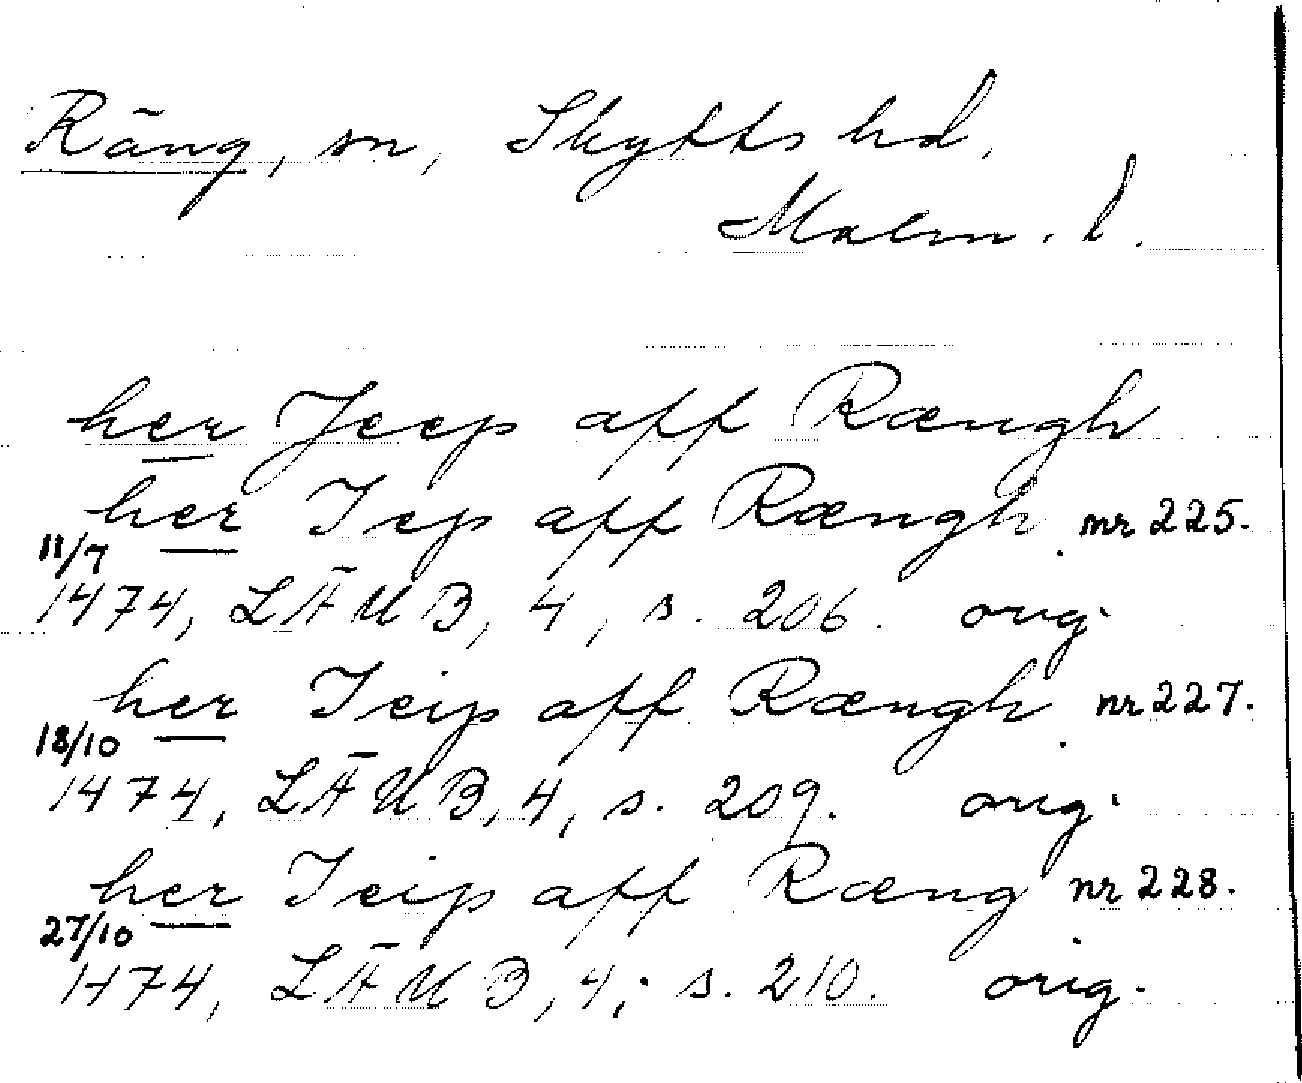 Räng, sn, Skytts hd,
Malm. l.
her Jeep aff Rængh
her Iep aff Rængh. nr 225.
11/7
1474, LÄUB, 4, s. 206. orig.
her Ieip aff Rængh. nr 227.
18/10
1474, LÄUB, 4, s. 209. orig.
her Ieip aff Ræng nr 228.
27/10
1474, LÄUB, 4, s. 210. orig.